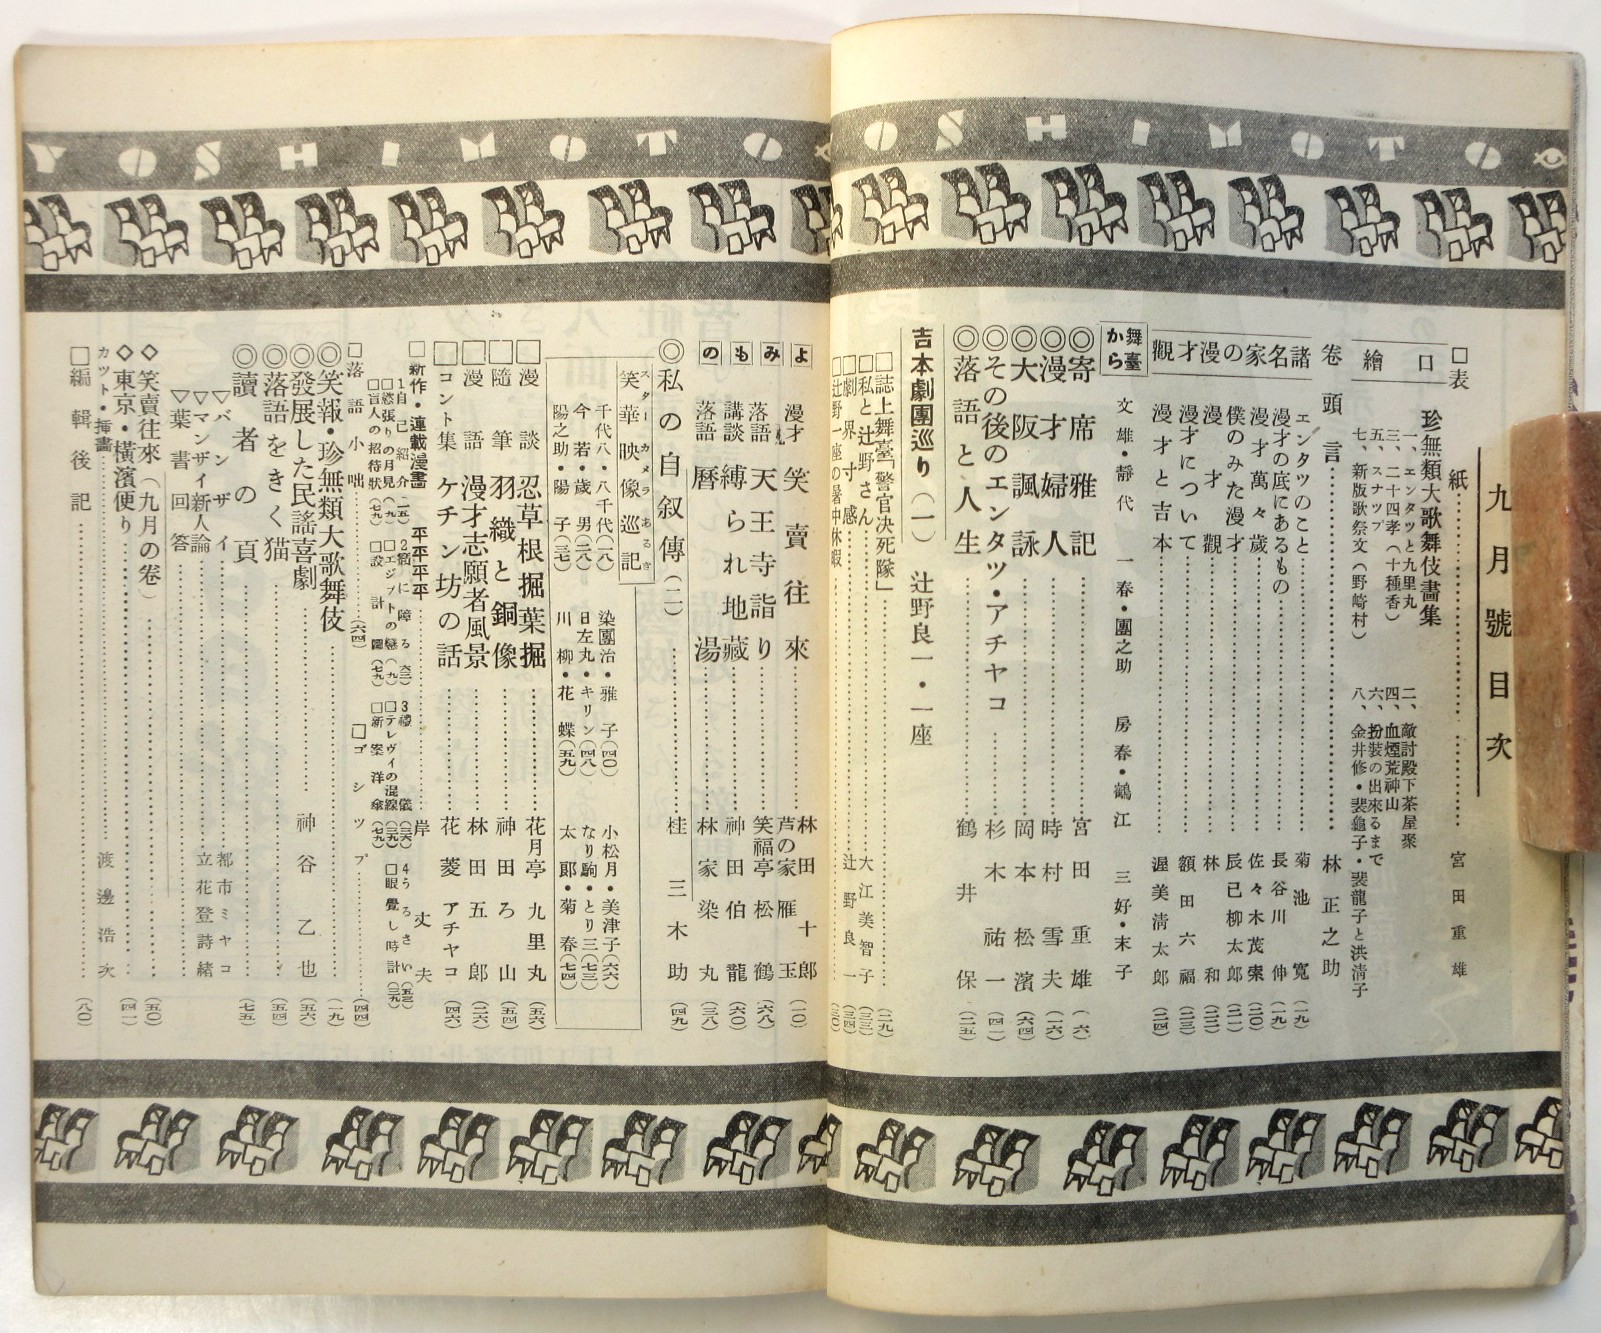 YOSHIMOTO
OSHIMOTO
九月號目次
□表紙 宮田重雄
口繪
珍無類大歌舞伎畫集
一、エンタツと九里丸
二、敵討殿下茶屋聚
三、二十四孝(十種香)
四、血煙荒神山
五、スナップ
六、扮装の出來るまで
七、新版歌祭文(野崎村)
八、金井修・裴龜子・裴龍子と洪淸子
卷頭言 林正之助
諸名家の漫才觀
エンタツのこと 菊池寛(一九)
漫才の底にあるもの 長谷川伸(一九)
漫才萬々歲 佐々木茂索(二〇)
僕のみた漫才 辰巳柳太郎(二一)
漫才觀 林和(二二)
漫才について 額田六福(二三)
漫才と吉本 渥美淸太郎(二四)
舞臺から
文雄・靜代 一春・團之助 房春・鶴江 三好・末子
◎寄席雅記 宮田重雄(六)
◎漫才婦人 時村雪夫(一六)
◎大阪諷詠 岡本松濱(六四)
◎その後のエンタツ・アチヤコ 杉木祐一(四一)
◎落語と人生 鶴井保(二五)
吉本劇團巡り(一) 辻野良一・一座
□誌上舞臺「警官決死隊」(二九)
□私と辻野さん 大江美智子(三三)
□劇界寸感 辻野良一(三四)
□辻野一座の暑中休暇(三〇)
よみもの
漫才 笑賣往來 林田十郎 芦の家雁玉(一〇)
落語 天王寺詣り 笑福亭松鶴(六八)
講談 縛られ地藏 神田伯龍(六〇)
落語 曆湯 林家染丸(三八)
◎私の自叙傳(二) 桂三木助(四九)
笑華映像巡記
スター カメラ あるき
千代八・八千代(二八) 染團治・雅子(四〇) 小松月・美津子(六六)
今若・歲男(三八) 日左丸・キリン(四八) なり駒・とり三(七三)
陽之助・陽子(三七) 川柳・花蝶(五九) 太郎・菊春(七四)
□漫談 忍草根掘葉掘 花月亭九里丸(五六)
□隨筆 羽織と銅像 神田ろ山(五四)
□漫語 漫才志願者風景 林田五郎(二六)
□コント集 ケチン坊の話 花菱アチヤコ(四六)
□新作・連載漫畫 平平平平 岸丈夫
1自己紹介(一五) 2癇に障る(六三) 3禮儀(三六) 4うるさい(五三)
□慾張りの月見(一九) □エジプトの戀(一九) □テレヴィの混線(三九) □眼覺し時計(三九)
□盲人の招待狀(七九) □設計圖(七九) □新案洋傘(七九)
□落語小咄(六四) □ゴシップ(四四)
◎笑報・珍無類大歌舞伎(一九)
◎發展した民謠喜劇 神谷乙也(五六)
◎落語をきく猫(五四)
◎讀者の頁(七五)
▽バンザイ 都市ミヤコ
▽マンザイ新人論 立花登詩緒
▽葉書回答
◇笑賣往來(九月の卷)(五〇)
◇東京・横濱便り(四一)
カット・揷畫 渡邊浩次
□編輯後記(八〇)